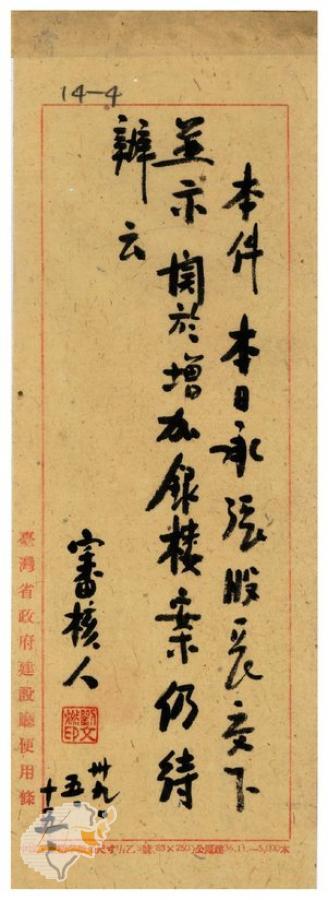 14-4
本件本日承張股長交下
並示関於增加銀楼案仍待
辦云
審核人
劉文燃印
卅九、
五、
十五、
臺灣省政府建設廳便用條